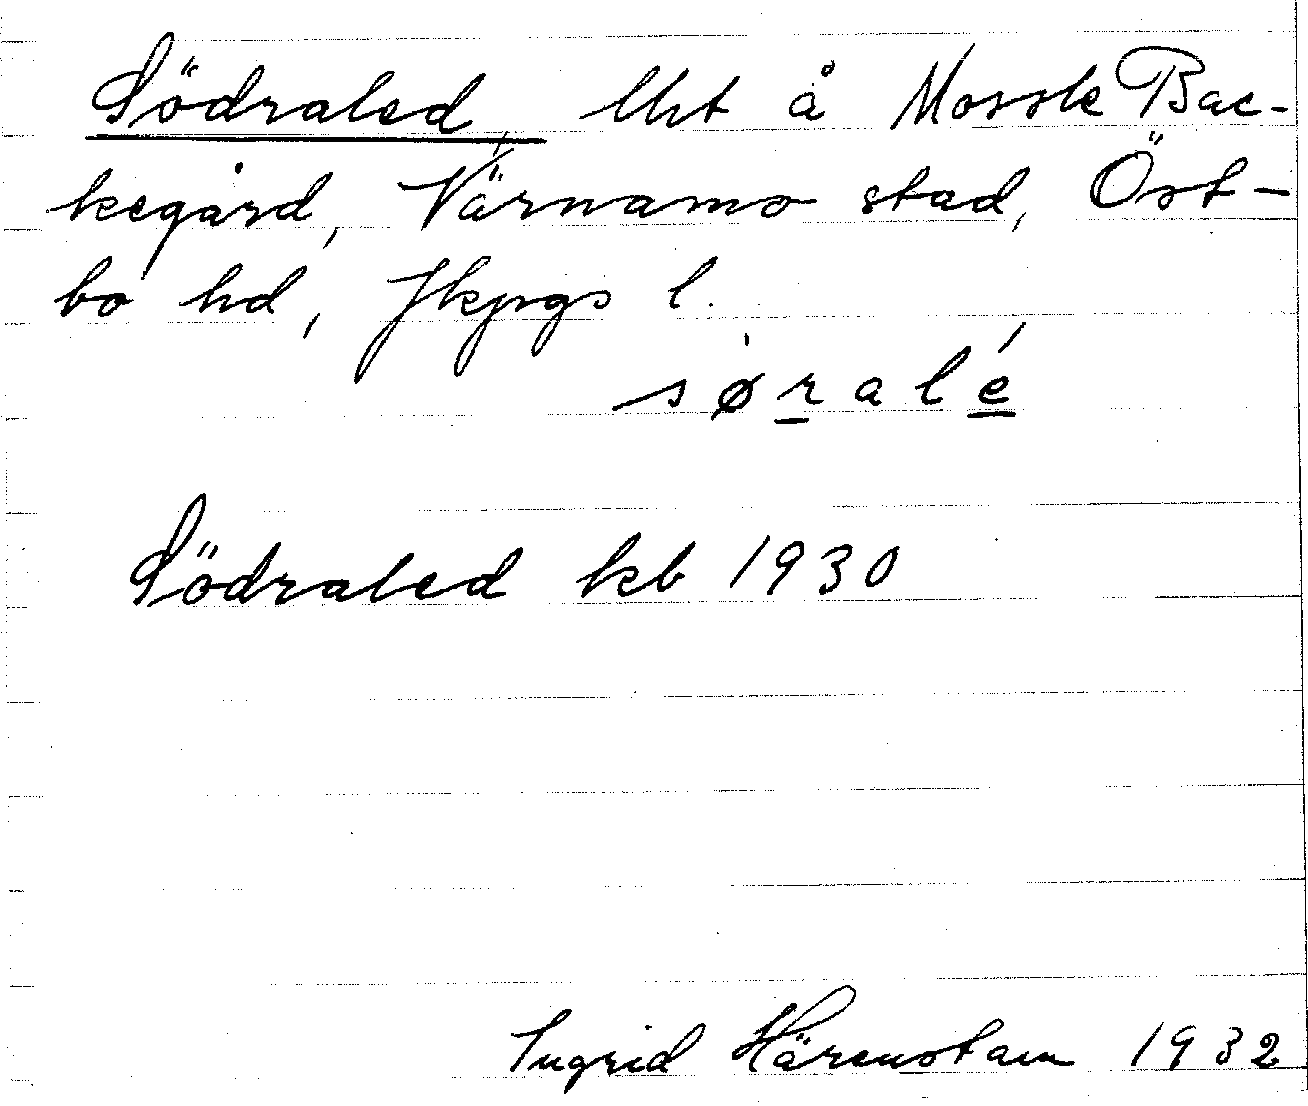 Södraled, lht å Mossle Bac-
kegård, Värnamo stad, Öst-
bo hd, Jkpgs l.
søralé
Södraled kb 1930
Ingrid Härenstam 1932